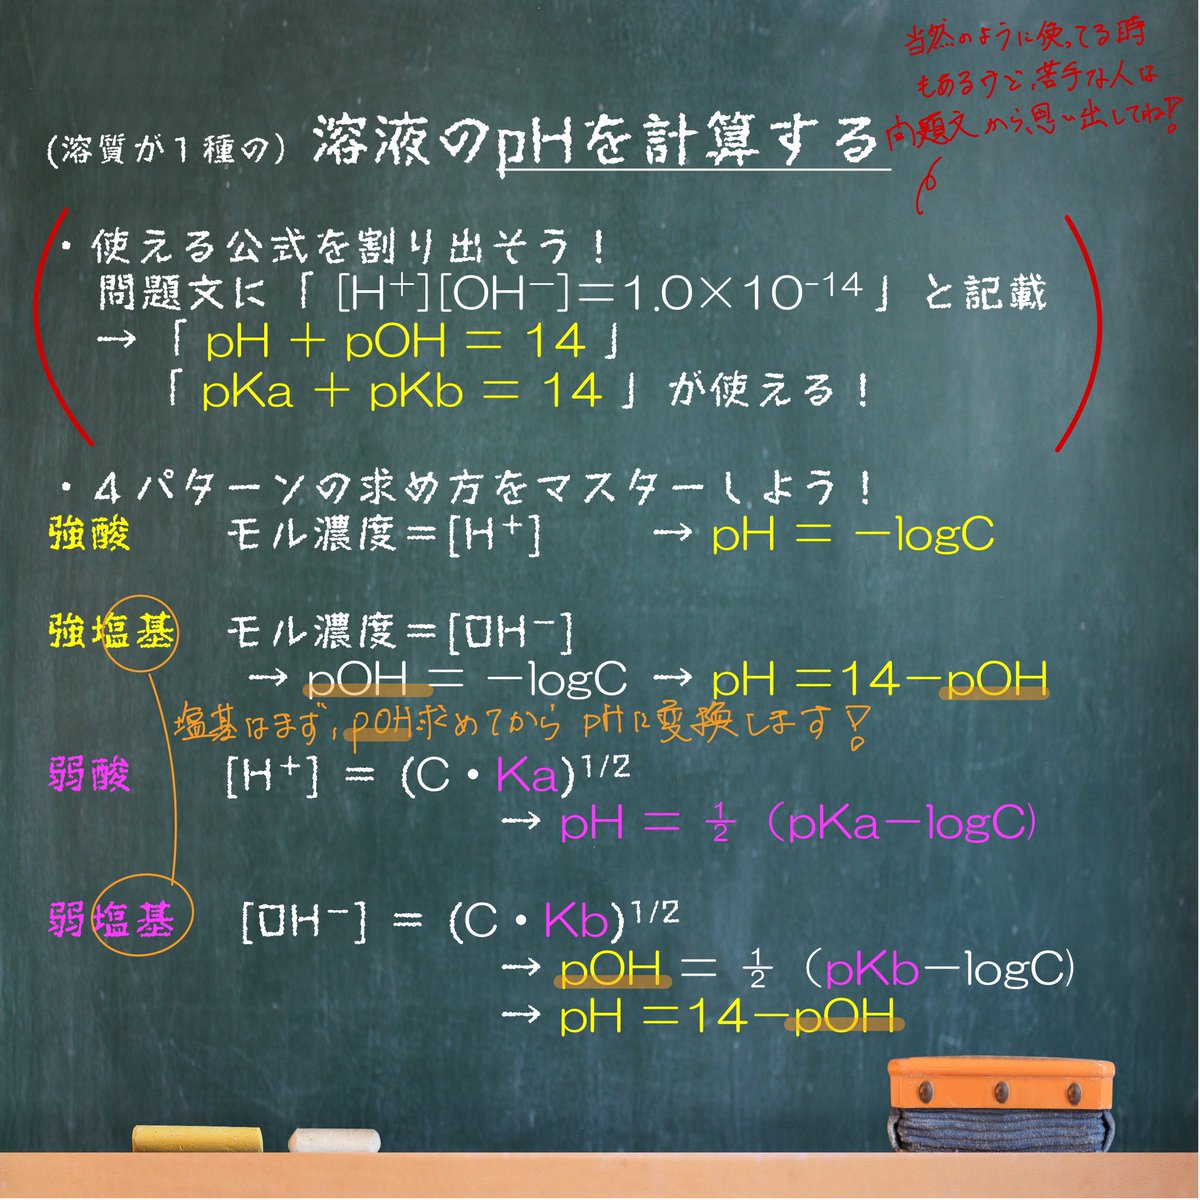 当然のように使ってる時
もあるけど、苦手な人は
問題文から、思い出してね!
(溶質が1種の) 溶液のpHを計算する
・使える公式を割り出そう!
問題文に「[H⁺][OH⁻]=1.0×10⁻¹⁴」と記載
→「pH + pOH = 14」
「pKa + pKb = 14」が使える!
・4パターンの求め方をマスターしよう!
強酸 モル濃度=[H⁺] → pH = −logC
強塩基 モル濃度=[OH⁻]
→ pOH = −logC → pH =14−pOH
塩基はまず、pOH求めてから pHに変換します!
弱酸 [H⁺] = (C・Ka)¹/²
→ pH = ½ (pKa−logC)
弱塩基 [OH⁻] = (C・Kb)¹/²
→ pOH = ½ (pKb−logC)
→ pH =14−pOH